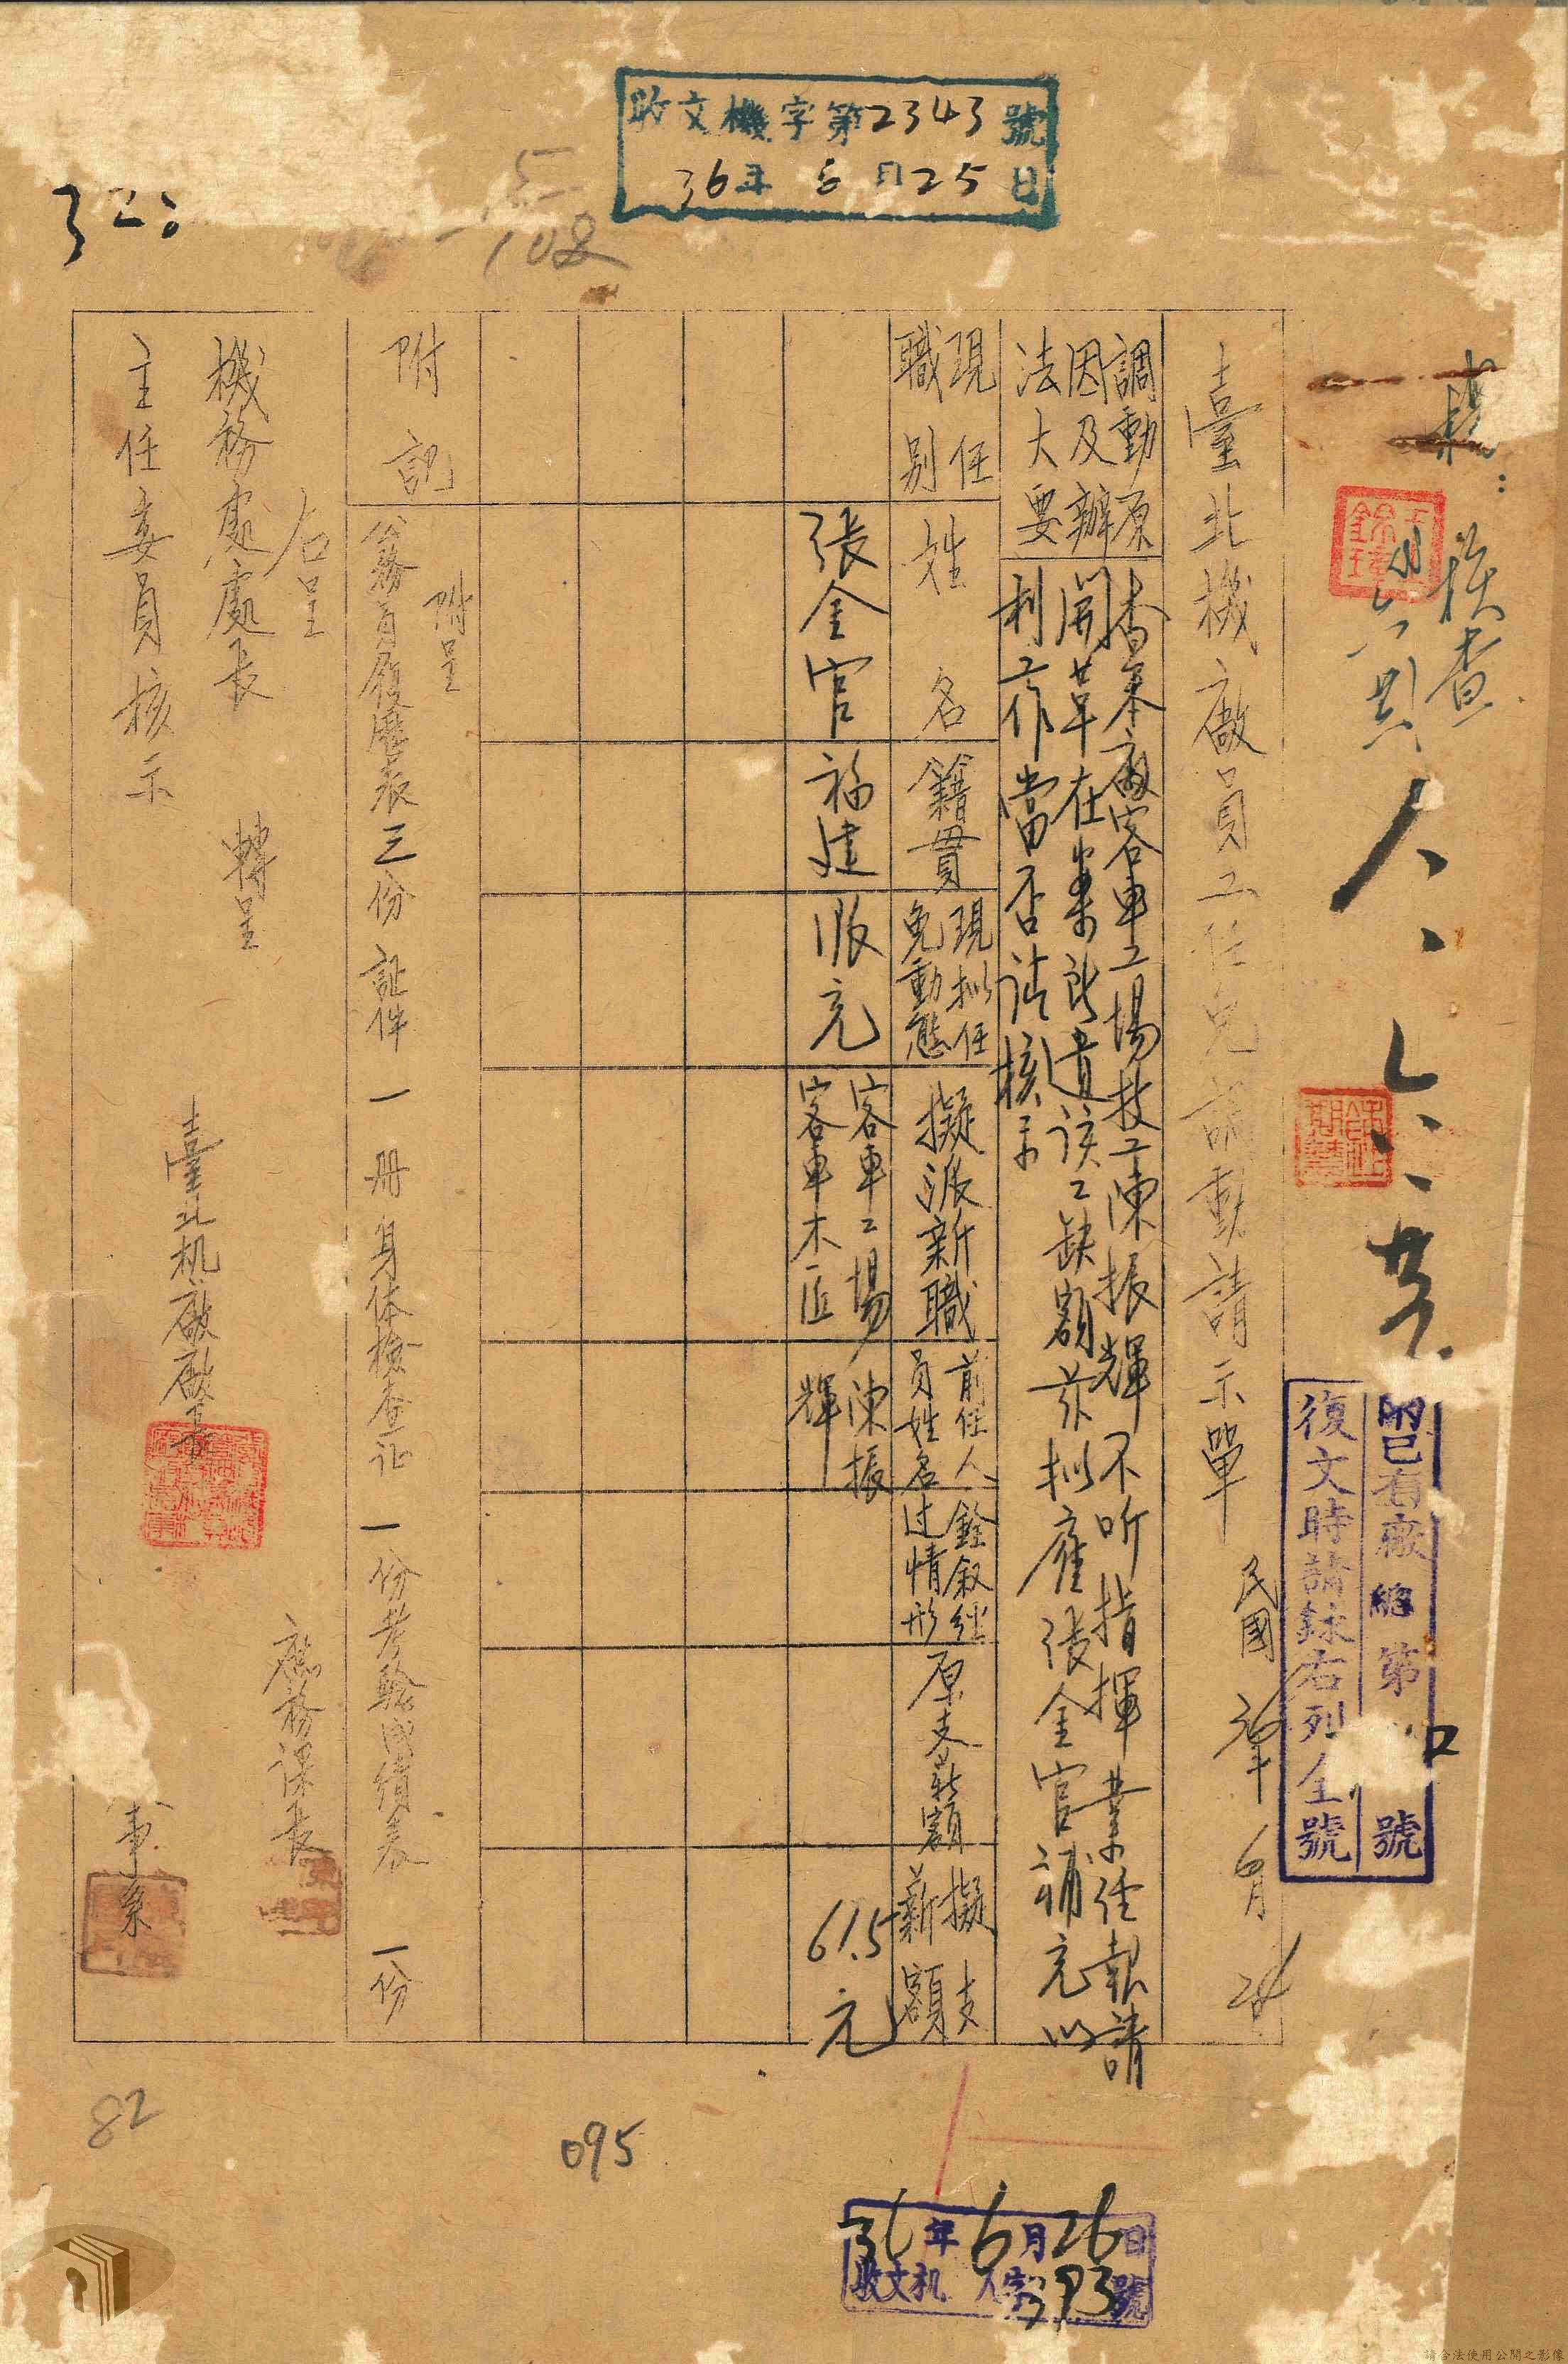 收文機字第2343號
36年6月25日
108
核查
人、六、
附已有廠總第 號
復文時請錄右列全號
臺北機廠員工任免調動請示單 民國36年6月24
調動原因及辦法大要
查本廠客車工場技工陳振輝不听指揮業經報請
開革在案所遺該工缺額茲拟雇張金官補充以
利工作當否請核示
現任職別
姓名
籍貫
現拟任免動態
擬派新職
前任人員姓名
銓敘經过情形
原支薪額
擬支薪額
張金官
福建
派充
客車工場客車木匠
陳振輝
61.5元
附記
附呈
份履歷表三份 証件一冊 身体檢查証一份 考驗成績表一份
右呈
機務處處長 轉呈
主任委員核示
臺北机廠廠長
應務課長
095
82
36年6月26日
收文机人字393號
請合法使用公開之影像